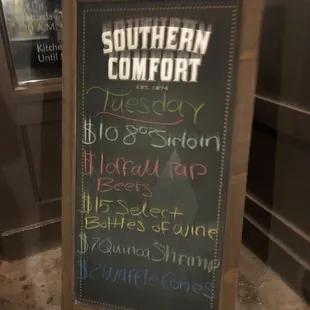 Saturday
10 A.M.
Kitchen
Until
SOUTHERN
COMFORT
EST. 1874
Tuesday
$10 8oz Sirloin
$1 off all Tap
Beers
$15 Select
Bottles of Wine
$7 Quinoa Shrimp
$2 Waffle Cones